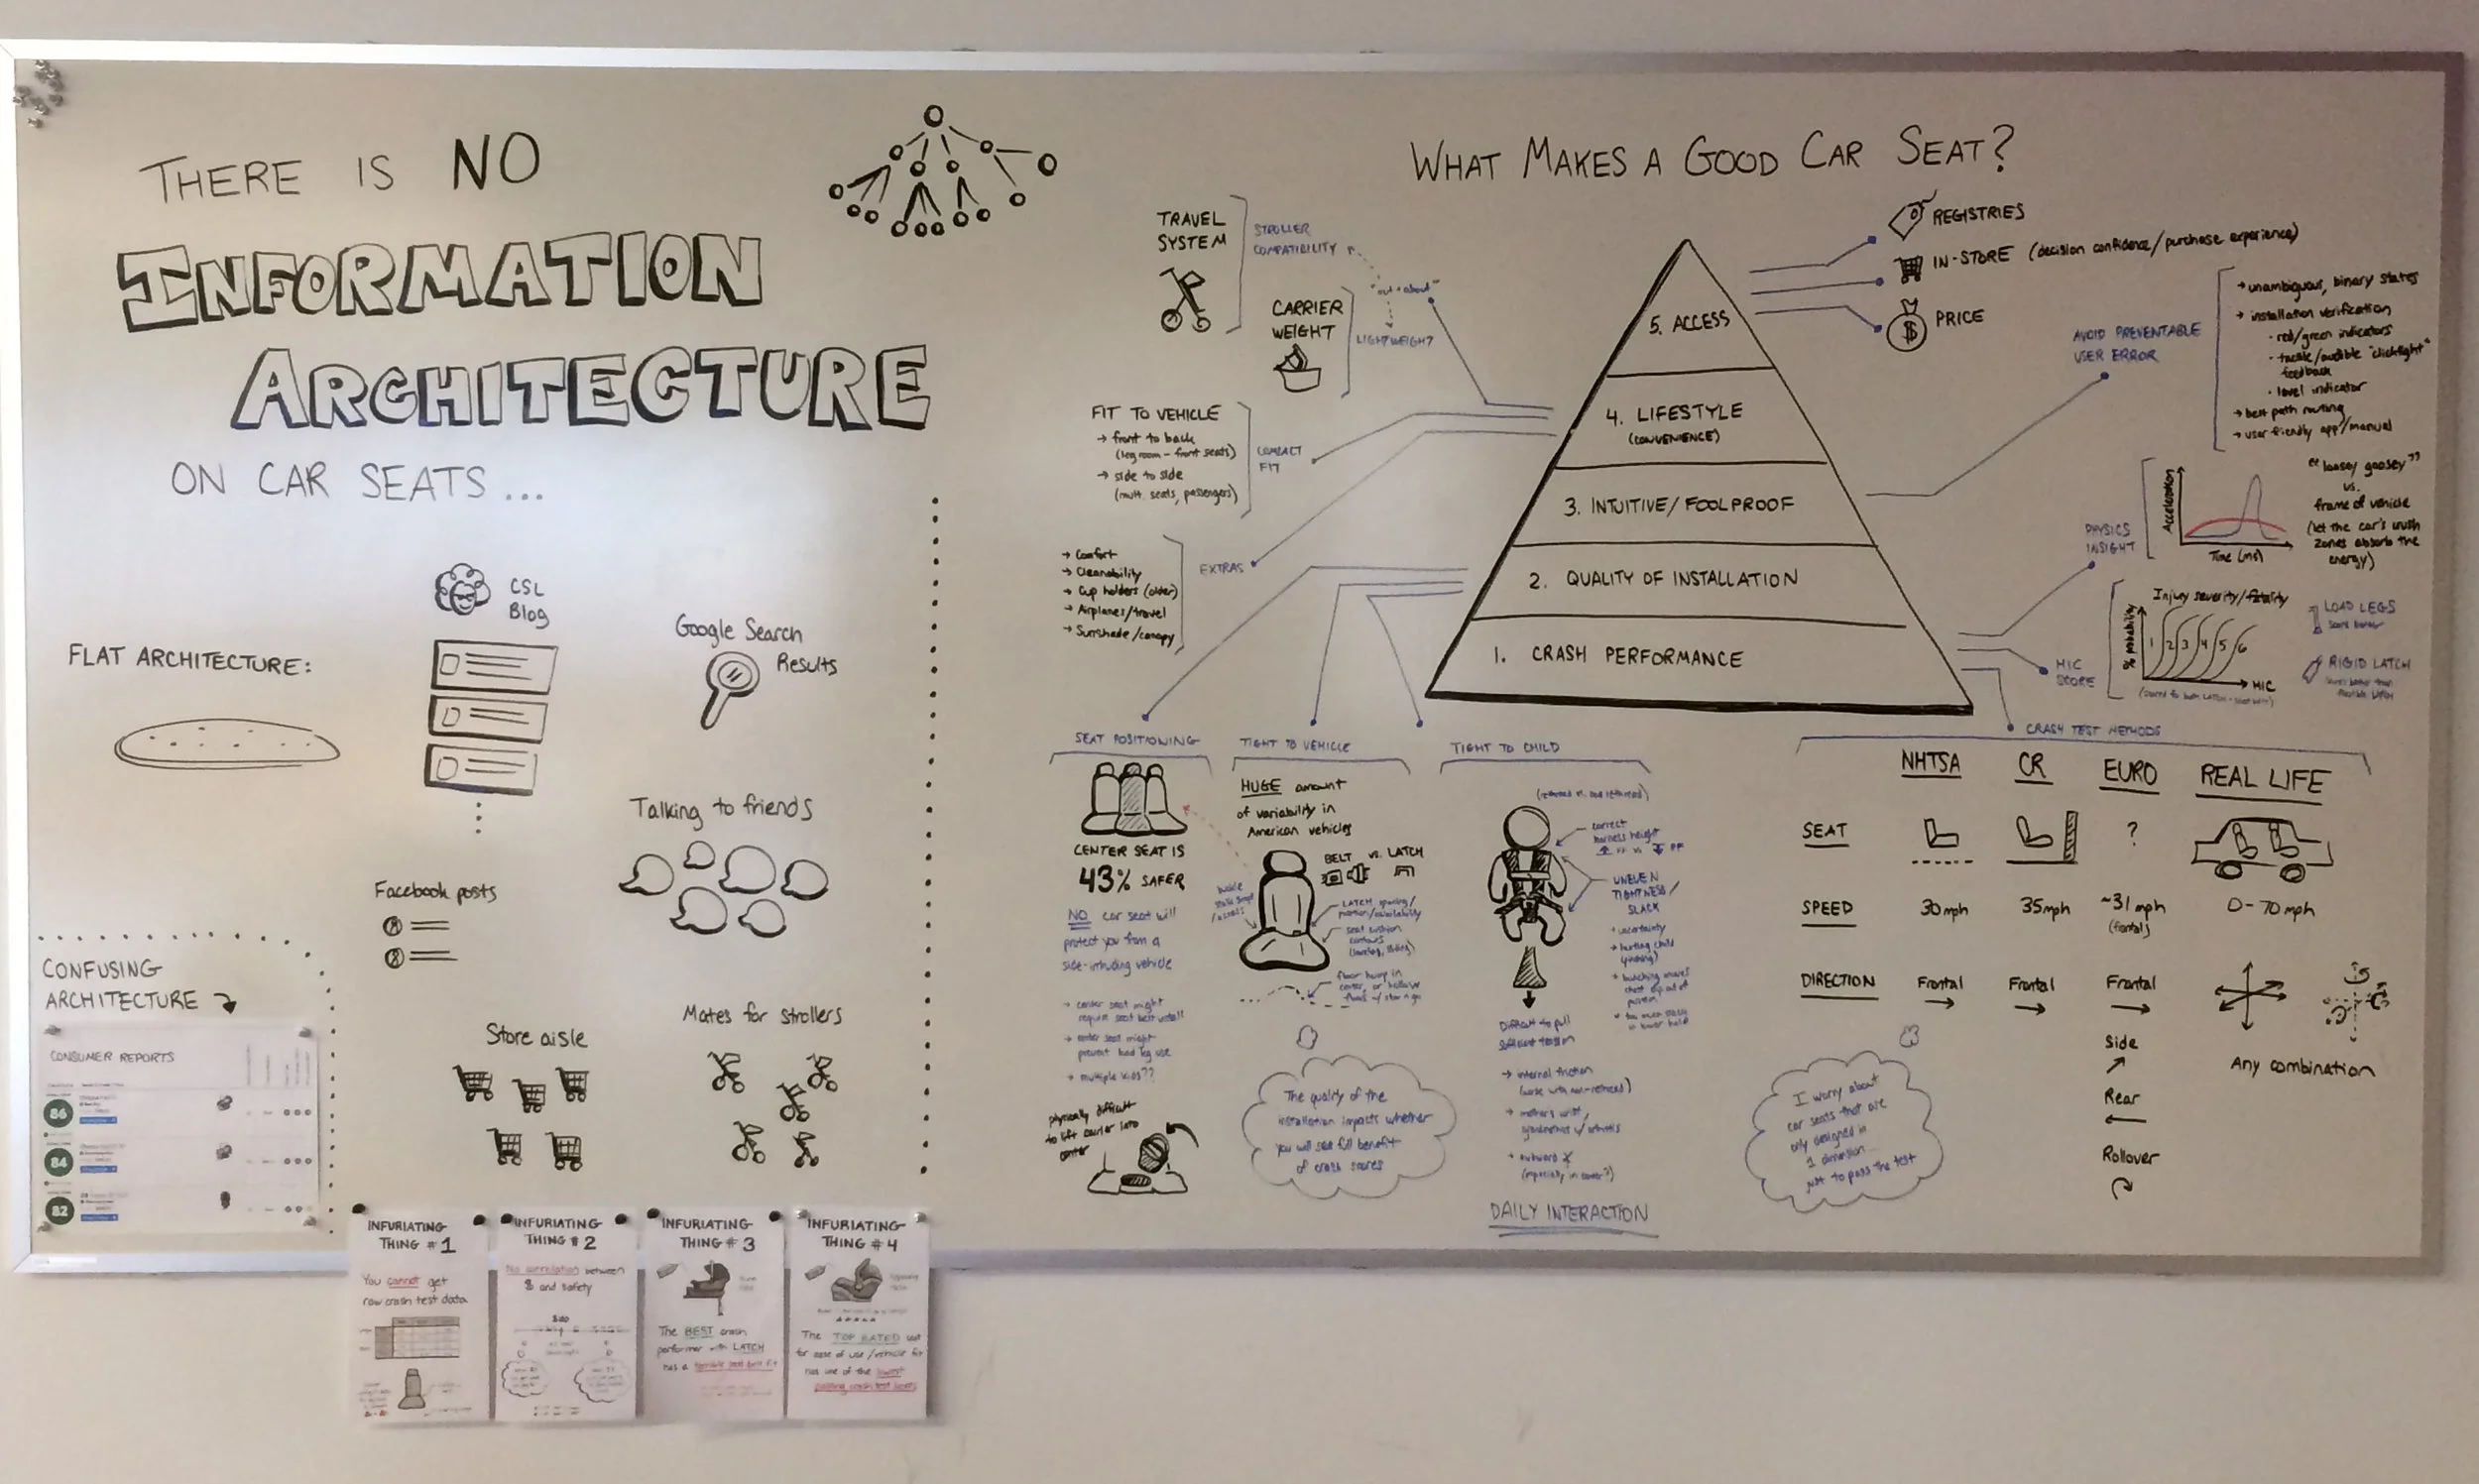 THERE IS NO
INFORMATION
ARCHITECTURE
ON CAR SEATS...
FLAT ARCHITECTURE:
CSL
Blog
Google Search
Results
Talking to friends
Facebook posts
Store aisle
Mates for strollers
CONFUSING
ARCHITECTURE
CONSUMER REPORTS
86
84
82
INFURIATING
THING #1
You cannot get
raw crash test data
INFURIATING
THING #2
No correlation between
$ and safety
INFURIATING
THING #3
The BEST crash
performer with LATCH
has a terrible seat belt fit
INFURIATING
THING #4
The TOP RATED
for ease of use/vehicle fit
has one of the lowest
crash test
WHAT MAKES A GOOD CAR SEAT?
TRAVEL
SYSTEM
STROLLER
COMPATIBILITY
"out + about"
CARRIER
WEIGHT
LIGHTWEIGHT
FIT TO VEHICLE
→ front to back
(leg room - front seats)
→ side to side
(mult. seats, passengers)
COMPACT
FIT
→ Comfort
→ Cleanability
→ Cup holders (older)
→ Airplanes/travel
→ Sunshade/canopy
EXTRAS
5. ACCESS
4. LIFESTYLE
(CONVENIENCE)
3. INTUITIVE/FOOLPROOF
2. QUALITY OF INSTALLATION
1. CRASH PERFORMANCE
REGISTRIES
IN-STORE (decision confidence/purchase experience)
$ PRICE
AVOID PREVENTABLE
USER ERROR
→ unambiguous, binary states
→ installation verification
· red/green indicators
· tactile/audible "clicktight"
feedback
· level indicator
→ best path routing
→ user friendly app/manual
PHYSICS
INSIGHT
Acceleration
Time (ms)
"loosey goosey"
vs.
frame of vehicle
(let the car's crush
zones absorb the
energy)
HIC
SCORE
Injury severity/fatality
% probability
1 2 3 4 5 6
HIC
LOAD LEGS
RIGID LATCH
SEAT POSITIONING
CENTER SEAT IS
43% SAFER
NO car seat will
protect you from a
side-intruding vehicle
→ center seat might
require seat belt install
→ center seat might
prevent load leg use
→ multiple kids??
physically difficult
to lift carrier into
center
TIGHT TO VEHICLE
HUGE amount
of variability in
American vehicles
BELT vs. LATCH
LATCH spacing/
position/availability
seat cushion
contours
floor hump in
center, or hollow
The quality of the
installation impacts whether
you will see full benefit
of crash scores
TIGHT TO CHILD
correct
harness height
UNEVEN
TIGHTNESS/
SLACK
· uncertainty
· hurting child
(pinching)
Difficult to pull
sufficient tension
→ internal friction
(worse with non-rethread)
DAILY INTERACTION
CRASH TEST METHODS
NHTSA CR EURO REAL LIFE
SEAT ?
SPEED 30mph 35mph ~31mph 0-70mph
(frontal)
DIRECTION Frontal Frontal Frontal
Side
Rear
Rollover
Any combination
I worry about
car seats that are
only designed in
1 dimension...
just to pass the test